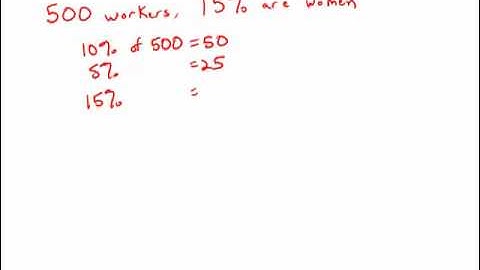 500 workers, 15% are women
10% of 500 = 50
5% = 25
15% =